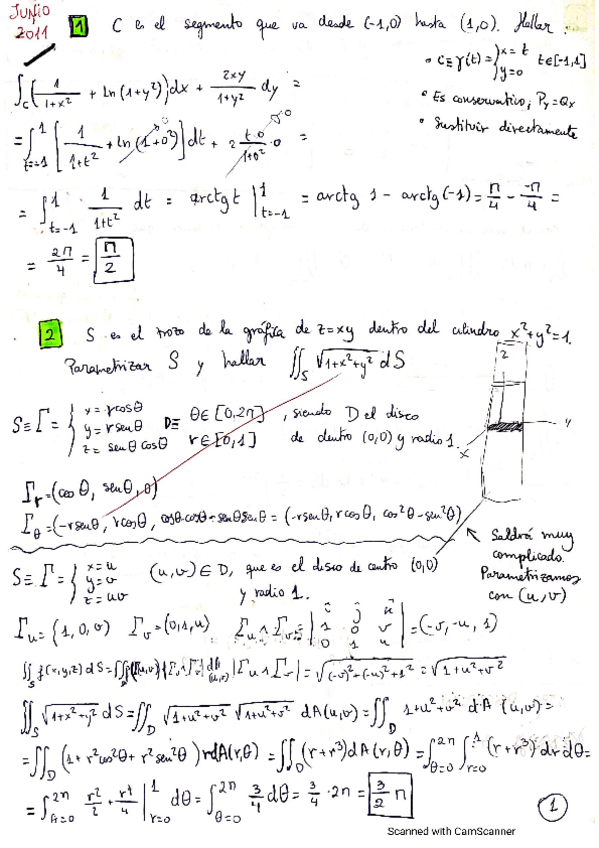 JUNIO 2011
1 C es el segmento que va desde (-1,0) hasta (1,0). Hallar:
• C≡γ(t) = { x=t y=0 t∈[-1,1]
∫_C (1/(1+x²) + ln(1+y²))dx + 2xy/(1+y²) dy =
• Es conservativo, P_y=Q_x
• Sustituir directamente
= ∫_{t=-1}^{1} [1/(1+t²) + ln(1+0²)]dt + 2 t·0/(1+0²) ·0 =
= ∫_{t=-1}^{1} 1/(1+t²) dt = arctg t |_{t=-1}^{1} = arctg 1 - arctg(-1) = π/4 - -π/4 =
= 2π/4 = π/2
2 S es el trozo de la gráfica de z=xy dentro del cilindro x²+y²=1.
Parametrizar S y hallar ∬_S √(1+x²+y²) dS
S≡Γ= { x=rcosθ y=rsenθ z=senθcosθ D≡ θ∈[0,2π] r∈[0,1] , siendo D el disco
de dentro (0,0) y radio 1.
z
y
x
Γ_r=(cosθ, senθ, 0)
Γ_θ=(-rsenθ, rcosθ, cosθ·cosθ-senθsenθ = (-rsenθ, rcosθ, cos²θ-sen²θ)
Saldrá muy
complicado.
Parametrizamos
con (u,v)
S≡Γ= { x=u y=v z=uv (u,v)∈D, que es el disco de centro (0,0)
y radio 1.
Γ_u=(1,0,v) Γ_v=(0,1,u) Γ_u∧Γ_v= |i j k; 1 0 v; 0 1 u| =(-v,-u,1)
|Γ_u∧Γ_v|=√((-v)²+(-u)²+1²)=√(1+u²+v²)
∬_S √(1+x²+y²) dS=∬_D √(1+u²+v²) √(1+u²+v²) dA(u,v)=∬_D 1+u²+v² dA(u,v)=
=∬_D (1+r²cos²θ+r²sen²θ)rdA(r,θ)=∬_D(r+r³)dA(r,θ)=∫_{θ=0}^{2π}∫_{r=0}^{1}(r+r³)drdθ=
=∫_{θ=0}^{2π} r²/2+r⁴/4 |_{r=0}^{1} dθ=∫_{θ=0}^{2π} 3/4 dθ=3/4·2π= 3/2 π
1
Scanned with CamScanner